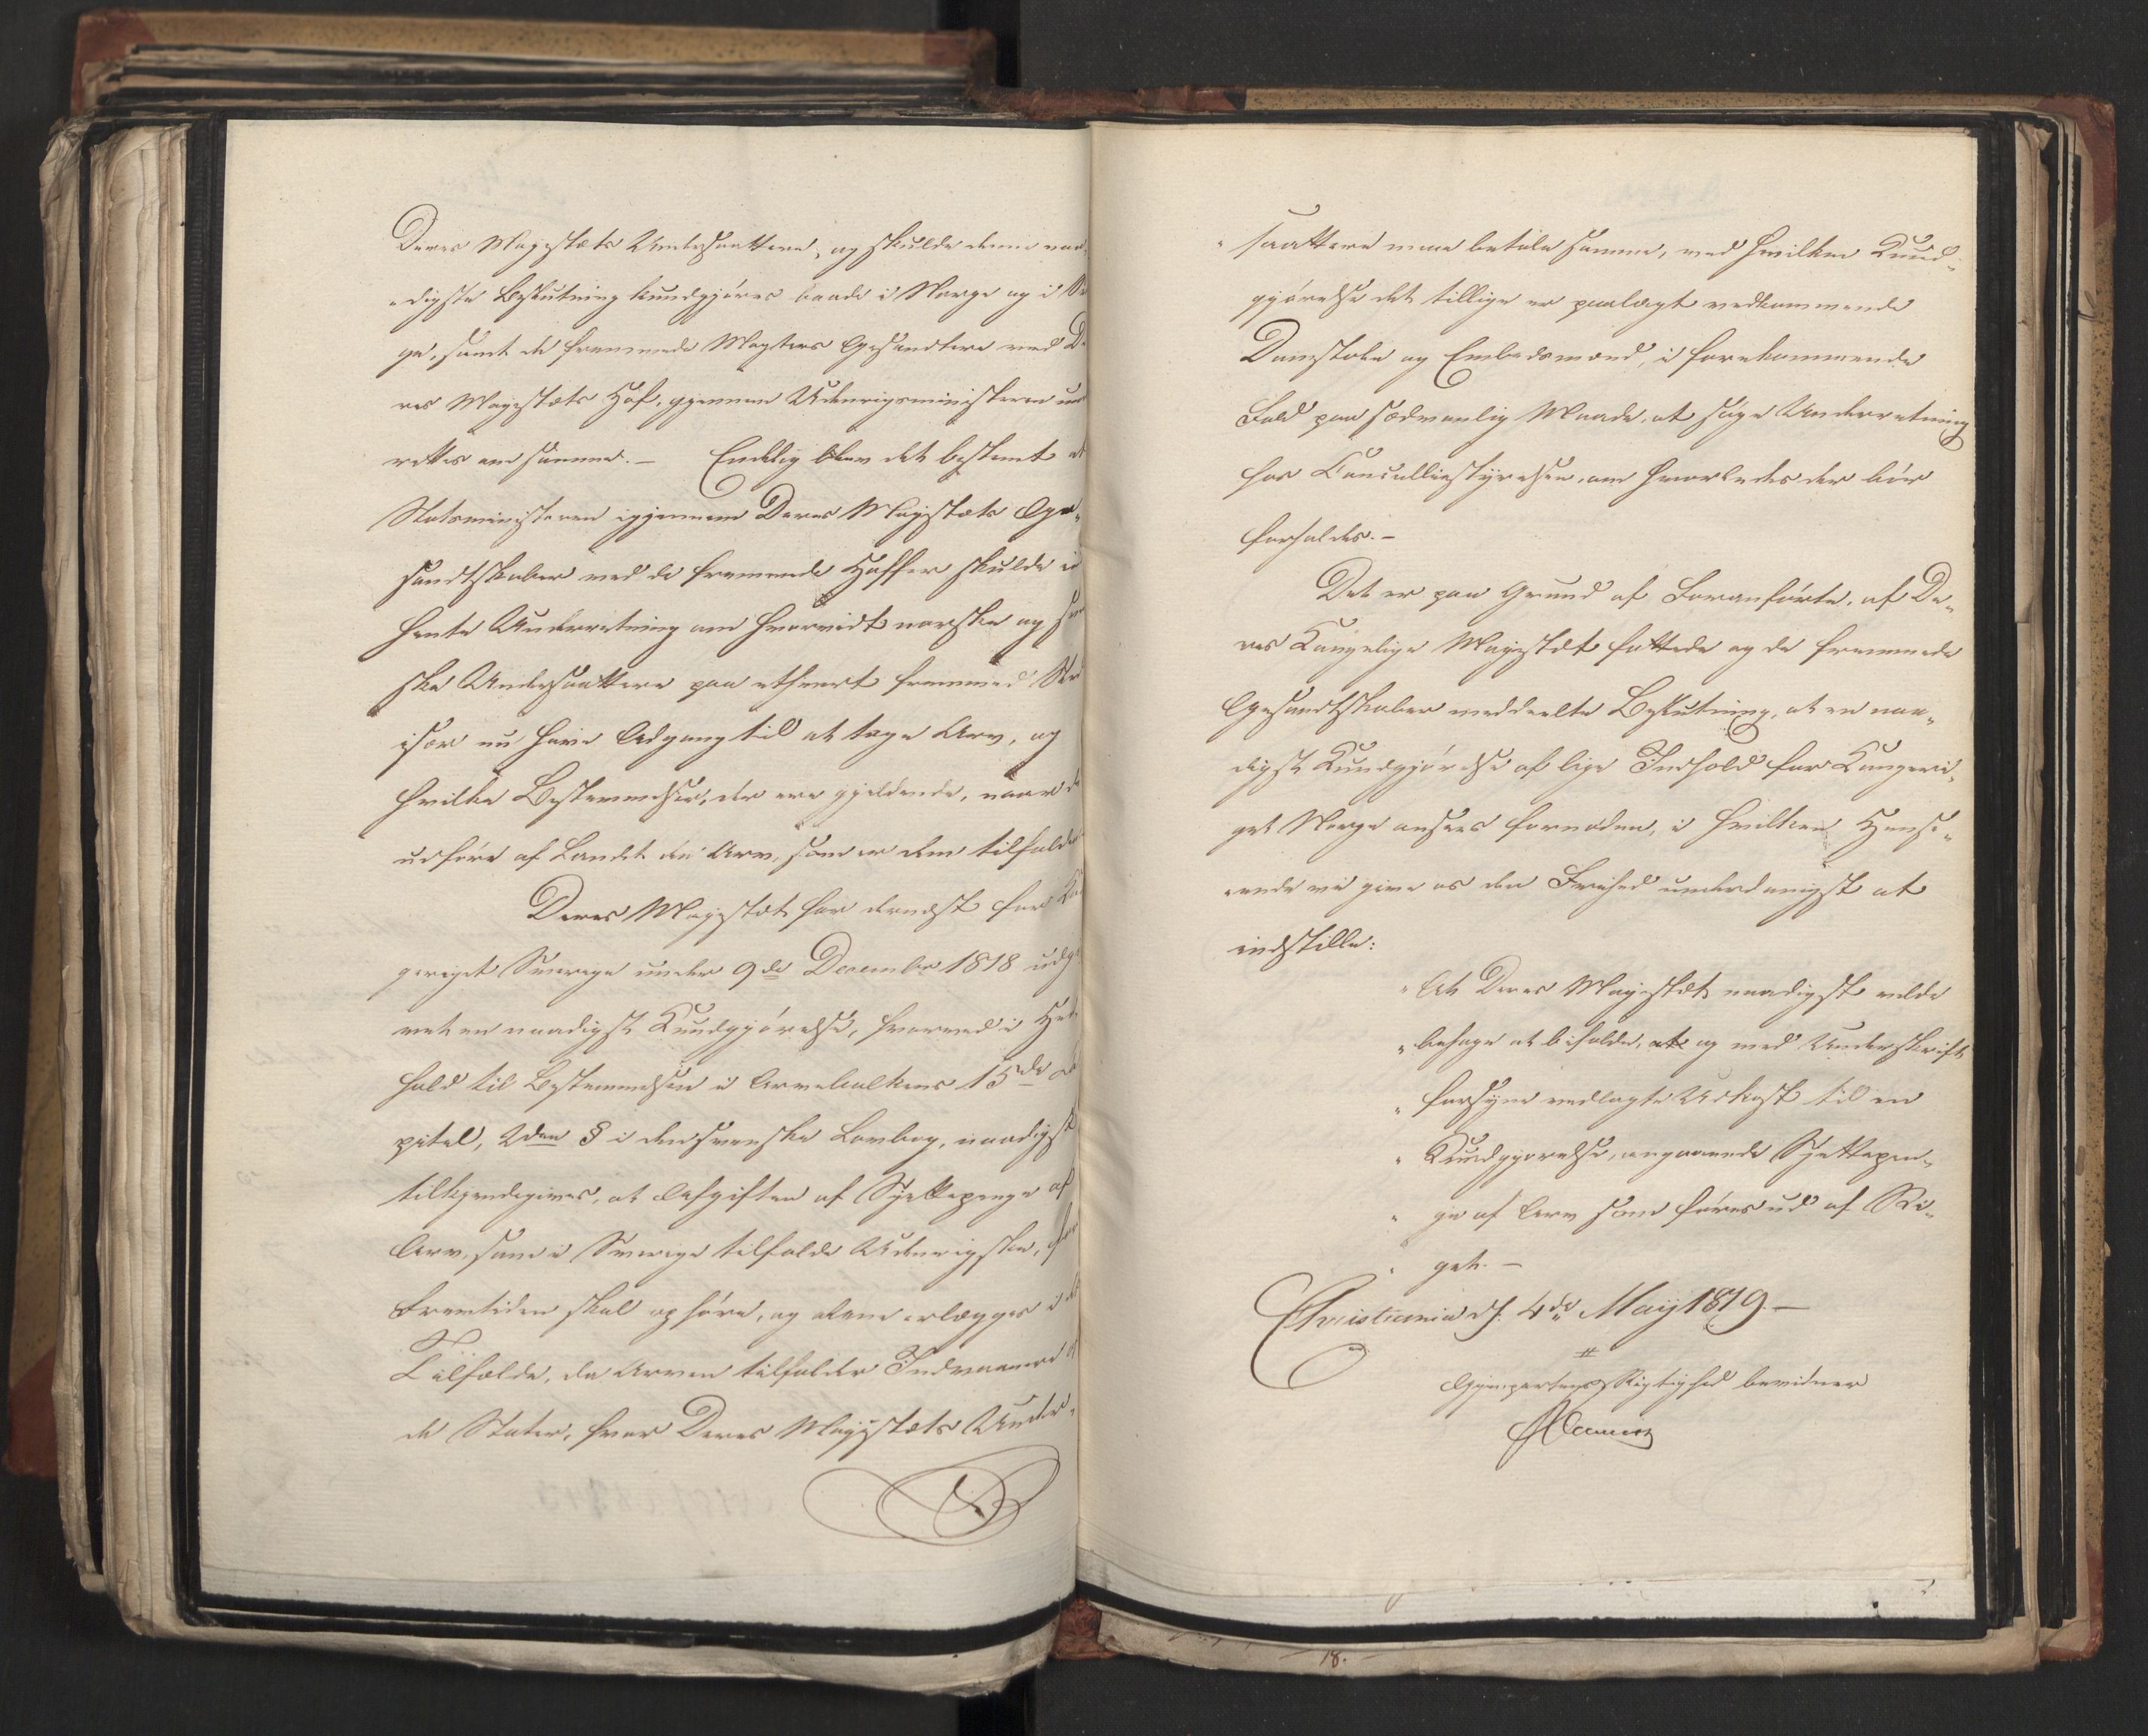 Deres Majestæts Undersaattere, og skulde denne naa-
"digste Beslutning kundgjöres baade i Norge og i Sve
ge, samt de fremmede Magters Gesandtere ved De
res Majestæts Hof, gjennem Udenrigsministeren und
rettes om samme. — Endelig blev det bestemt at
Statsministeren igjennem Deres Majestæts Ge-
sandtskaber ved de fremmede Hoffer skulde ind
hente Underretning om hvorvidt norske og sven
ske Undersaattere paa ethvert fremmed Sted
især nu have Adgang til at tage Arv, og
hvilke Bestemmelser, der ere gjeldende, naar de
udföre af Landet den Arv, som er dem tilfalden
Deres Majestæt har dernæst for Kon
geriget Sverige under 9de December 1818 udgi
vet en naadigst Kundgjörelse, hvorved i Hen
hold til Bestemmelsen i Arvebalkens 15de Ca
pitel, 2den § i den svenske Lovbog, naadigst
tilkjendegives, at Afgiften af Sjettepenge af
Arv, som i Sverige tilfalde Udenrigske, for
Fremtiden skal ophöre, og alene erlægges i de
Tilfælde, da Arven tilfalder Indvaanere af
de Stater, hvor Deres Majestæts Under-
"saattere maae betale samme, ved hvilken Kund-
gjörelse det tillige er paalagt vedkommende
Domstole og Embedsmænd, i forekommende
Fald paa sædvanlig Maade, at söge Underretning
hos Cancelliestyrelsen, om hvorledes der bör
forholdes. —
Det er paa Grund af Foranförte, af De-
res Kongelige Majestæt fattede og de fremmede
Gesandtskaber meddeelte Beslutning, at en naa-
digst Kundgjörelse af lige Indhold for Kongeri-
get Norge ansees fornöden, i hvilken Hense-
ende vi give os den Frihed underdanigst at
indstille:
"At Deres Majestæt naadigst vilde
"behage at bifalde, at og med Underskrift
"forsyne vedlagte Udkast til en
"Kundgjorelse, angaaende Sjettepen-
"ge af Arv som föres ud af Ri-
"get. —
Christiania d. 4de May 1819. —
Gjenpartens Rigtighed bevidner
18.